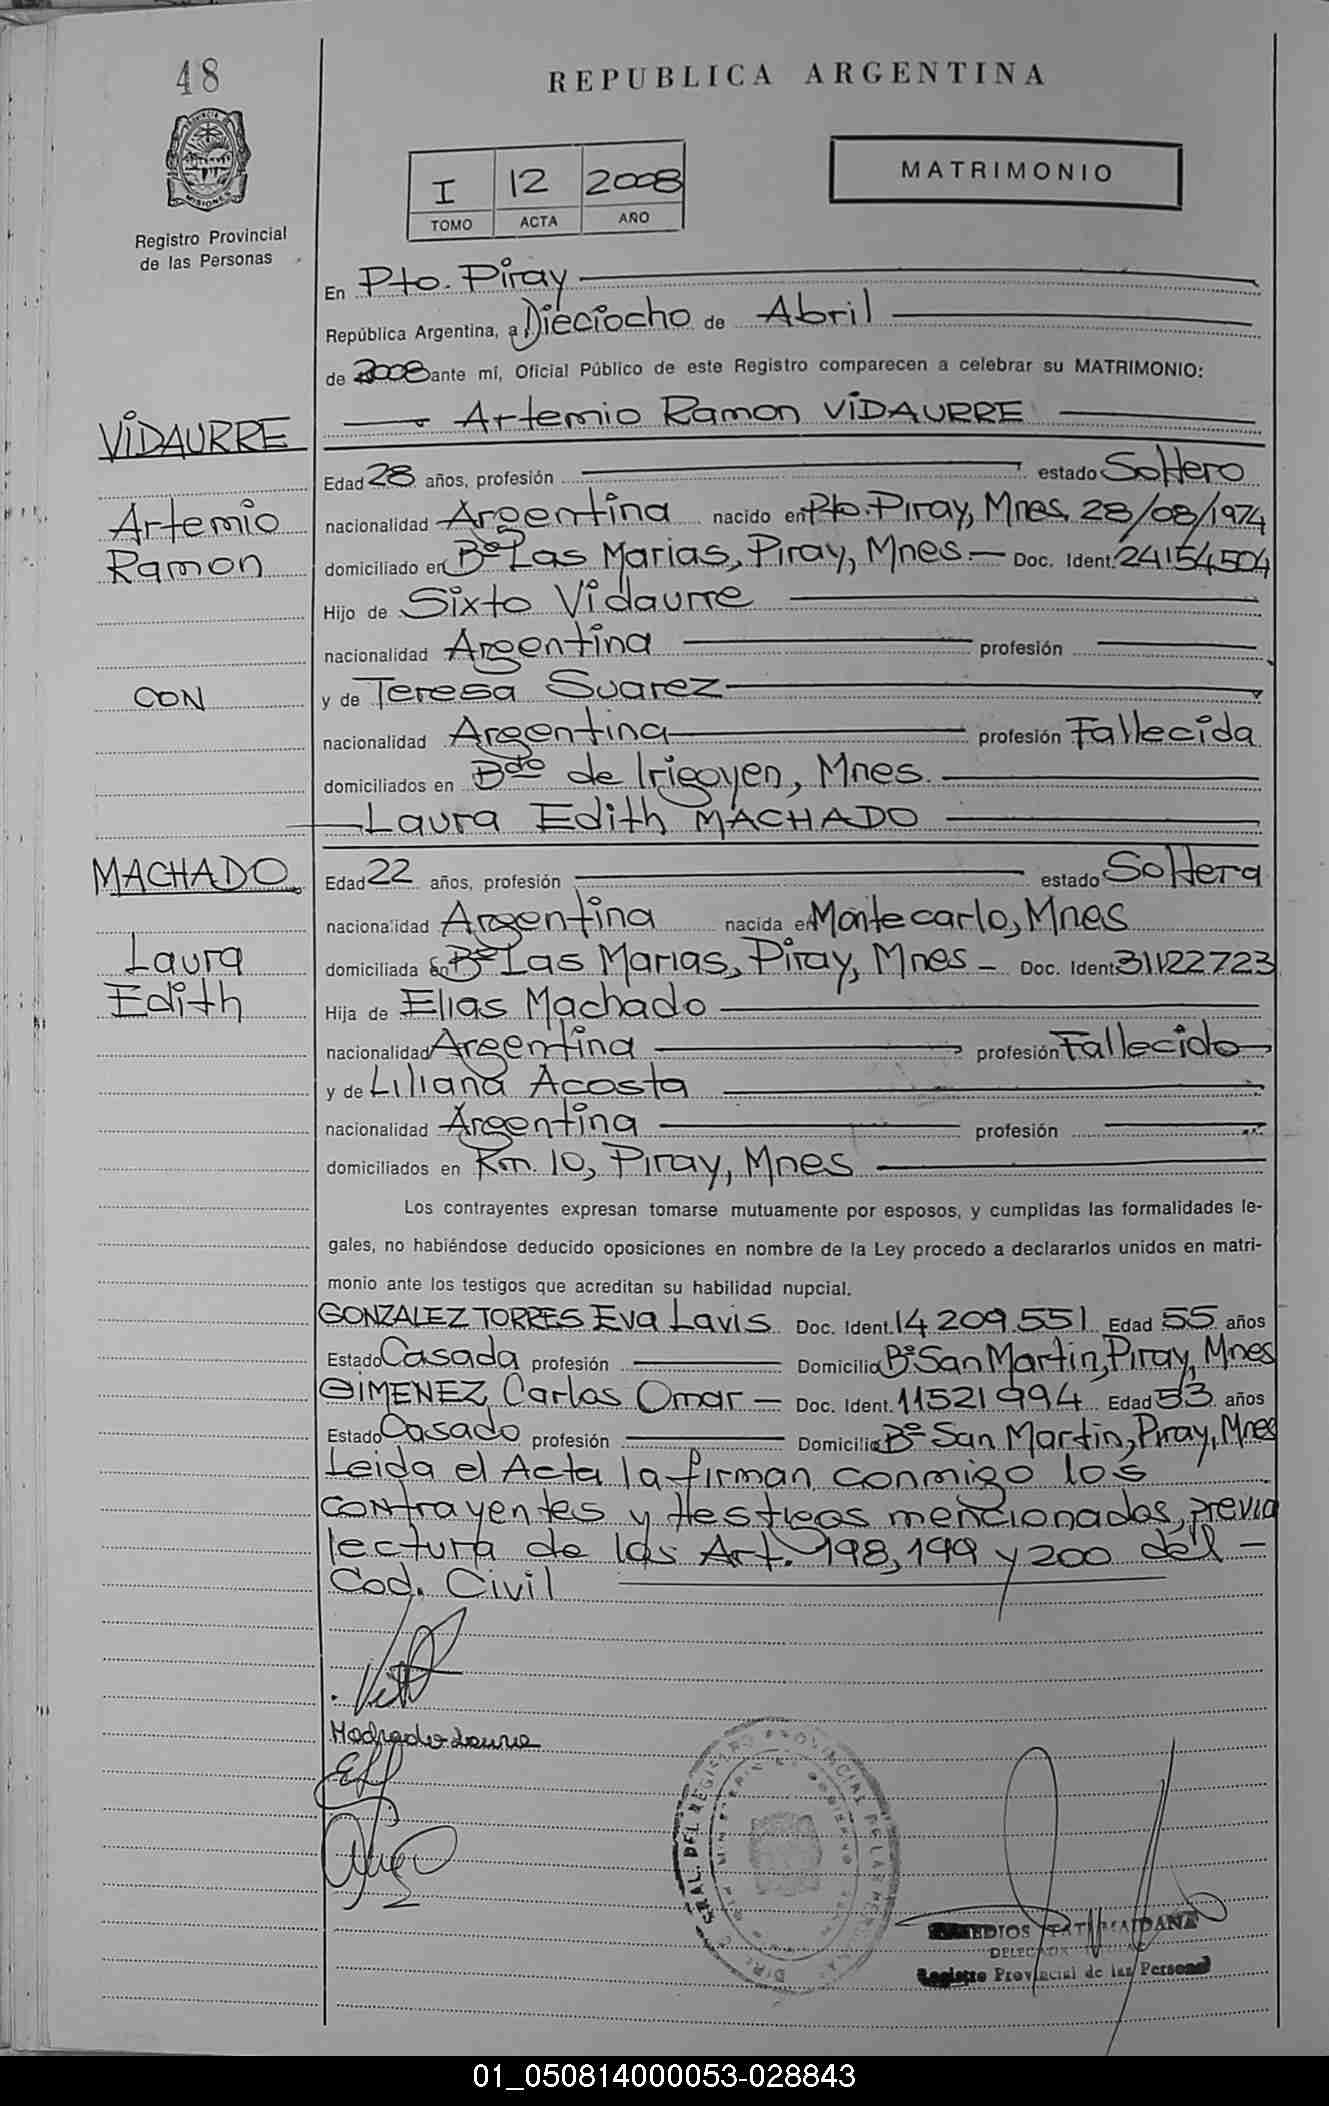 48
REPUBLICA ARGENTINA
MATRIMONIO
I 12 2008
TOMO ACTA AÑO
MISIONES
Registro Provincial
de las Personas
En Pto. Piray
República Argentina, a Dieciocho de Abril
de 2008 ante mí, Oficial Público de este Registro comparecen a celebrar su MATRIMONIO:
Artemio Ramon VIDAURRE
VIDAURRE
Edad 28 años, profesión estado Soltero
Artemio
nacionalidad Argentina nacido en Pto. Piray, Mnes 28/08/1974
Ramon
domiciliado en Bº Las Marias, Piray, Mnes - Doc. Ident. 24154504
Hijo de Sixto Vidaurre
nacionalidad Argentina profesión
CON
y de Teresa Suarez
nacionalidad Argentina profesión Fallecida
domiciliados en Bdo de Irigoyen, Mnes.
Laura Edith MACHADO
MACHADO
Edad 22 años, profesión estado Soltera
nacionalidad Argentina nacida en Montecarlo, Mnes
Laura
domiciliada en Bº Las Marias, Piray, Mnes - Doc. Ident. 31122723
Edith
Hija de Elias Machado
nacionalidad Argentina profesión Fallecido
y de Liliana Acosta
nacionalidad Argentina profesión
domiciliados en Km. 10, Piray, Mnes
Los contrayentes expresan tomarse mutuamente por esposos, y cumplidas las formalidades le-
gales, no habiéndose deducido oposiciones en nombre de la Ley procedo a declararlos unidos en matri-
monio ante los testigos que acreditan su habilidad nupcial.
GONZALEZ TORRES Eva Lavis Doc. Ident. 14 209.551 Edad 55 años
Estado Casada profesión Domicilio Bº San Martin, Piray, Mnes
GIMENEZ Carlos Omar - Doc. Ident. 11521994 Edad 53 años
Estado Casado profesión Domicilio Bº San Martin, Piray, Mnes
Leida el Acta la firman conmigo los
contrayentes y testigos mencionados, previa
lectura de los Art. 198, 199 y 200 del -
Cod. Civil
Machado Laura
GRAL. DEL REGISTRO PROVINCIAL DE LAS PERSONAS
DELEGADA TITULAR
Registro Provincial de las Personas
01_050814000053-028843